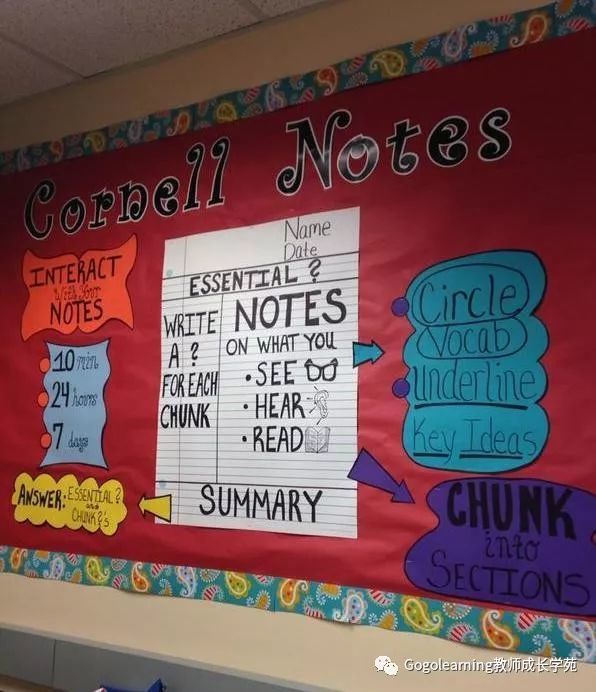 Cornell Notes
INTERACT
With Your
NOTES
10 min
24 hours
7 days
ANSWER: ESSENTIAL ?
and
CHUNK ?'s
Name
Date
ESSENTIAL ?
WRITE
A ?
FOR EACH
CHUNK
NOTES
ON WHAT YOU
• SEE
• HEAR
• READ
SUMMARY
Circle
Vocab
Underline
Key Ideas
CHUNK
into
SECTIONS
Gogolearning教师成长学苑